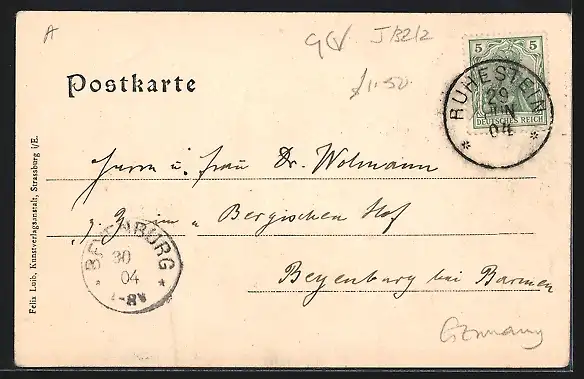 A
J/32/2
£1.50
Postkarte
5 5
DEUTSCHES REICH
RUHESTEIN
29
JUN
04
Herrn u. Frau Dr. Wolmann
z. Z. im „Bergischen Hof
BEYENBURG
30
04
Beyenburg bei Barmen
Germany
Felix Luib, Kunstverlagsanstalt, Strassburg i/E.